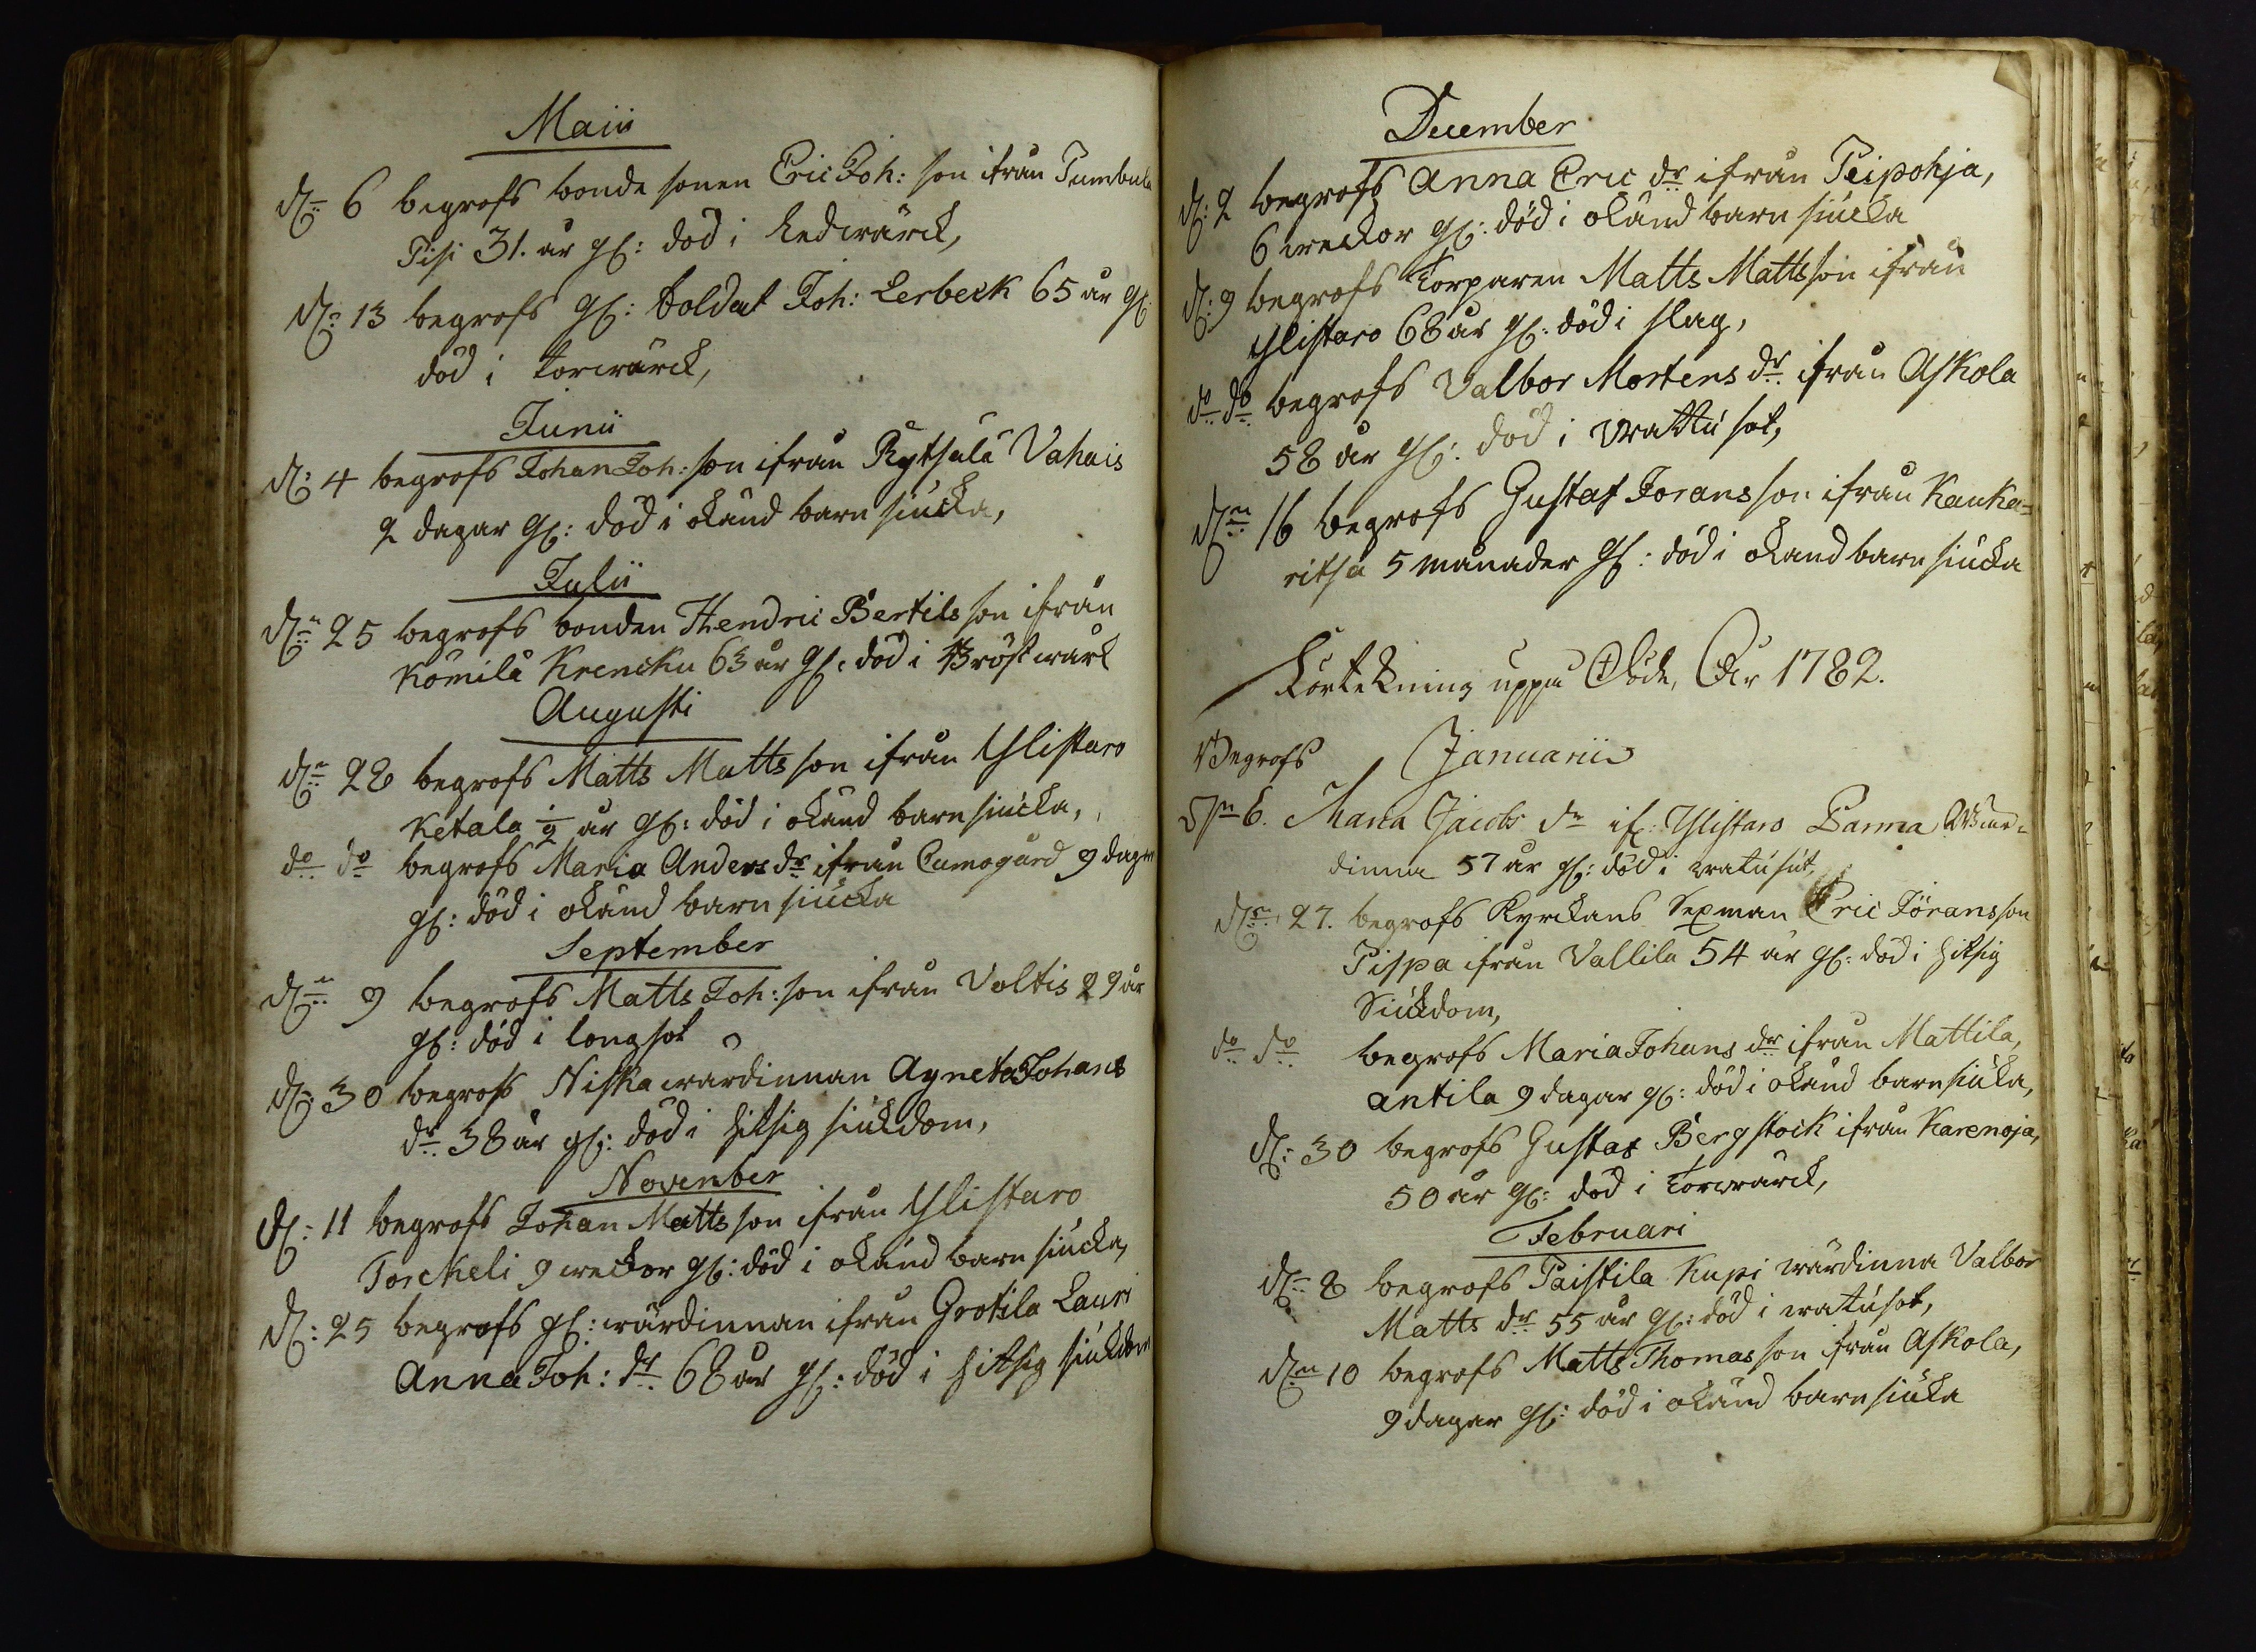 Maii
d: 6 begrofs bonde sonen Eric Joh: son ifrån Tumbula
Pisi 31. år gl: död i Ledwärck,
d: 13 begrofs gl: Soldat Joh: Lerbeck 65 år gl:
död i torrwärck,
Junii
d: 4 begrofs Johan Joh: son ifrån Rytsälä Vahais
2 dagar gl: död i okänd barn siucka,
Julii
dn 25 begrofs bonden Hendric Bertils son ifrån
Kömilä Krencku 63 år gl: död i Bröstwärk
Augusti
dn 28 begrofs Matts Matts son ifrån Ylistaro
Ketala ½ år gl: död i okänd barn siucka,
do do begrofs Maria Anders dr ifrån Cumogård 9 dagar
gl: död i okänd barn siucka
September
dn 9 begrofs Matts Joh: son ifrån Voltis 29 år
gl: död i longsot
d: 30 begrofs Niska wärdinnan Agneta Johans
dr 38 år gl: död i hitsig siukdom,
November
d: 11 begrofs Johan Matts son ifrån Ylistaro
Torckeli 9 weckor gl: död i okänd barn siucka,
d: 25 begrofs gl: wärdinnan ifrån Grotila Lauri
Anna Joh: dr 68 år gl: död i hitsig siukdom
December
d: 2 begrofs Anna Eric dr ifrån Peipohja,
6 weckor gl: död i okänd barn siucka
d: 9 begrofs Torparen Matts Matts son ifrån
Ylistaro 68 år gl: död i slag,
do do begrofs Valbor Mortens dr ifrån Askola
58 år gl: död i wattu sot,
dn 16 begrofs Gustaf Jorans son ifrån Kauka=
ritsa 5 månader gl: död i okand barn siucka
Förtekning uppå Döde, År 1782.
Begrofs Januarii
dn 6. Maria Jacobs dr if: Ylistaro Panna Wär=
dinna 57 år gl: död i watusút,
dn 27. begrofs Kyrckans Sexman Eric Jörans son
Pispa ifrån Vallila 54 år gl: död i hitsig
Siúkdom,
do do begrofs Maria Johans dr ifrån Mattila,
Antila 9 dagar gl: död i okänd barn siúka,
d: 30 begrofs Gustaf Bergstock ifrån Karenoja,
50 år gl: död i torrwärck,
Februari
d: 8 begrofs Paistila Kupi wärdinna Valbor
Matts dr 55 år gl: död i watúsot,
dn 10 begrofs Matts Thomas son från Askola,
9 dagar gl: död i okänd barn siúka